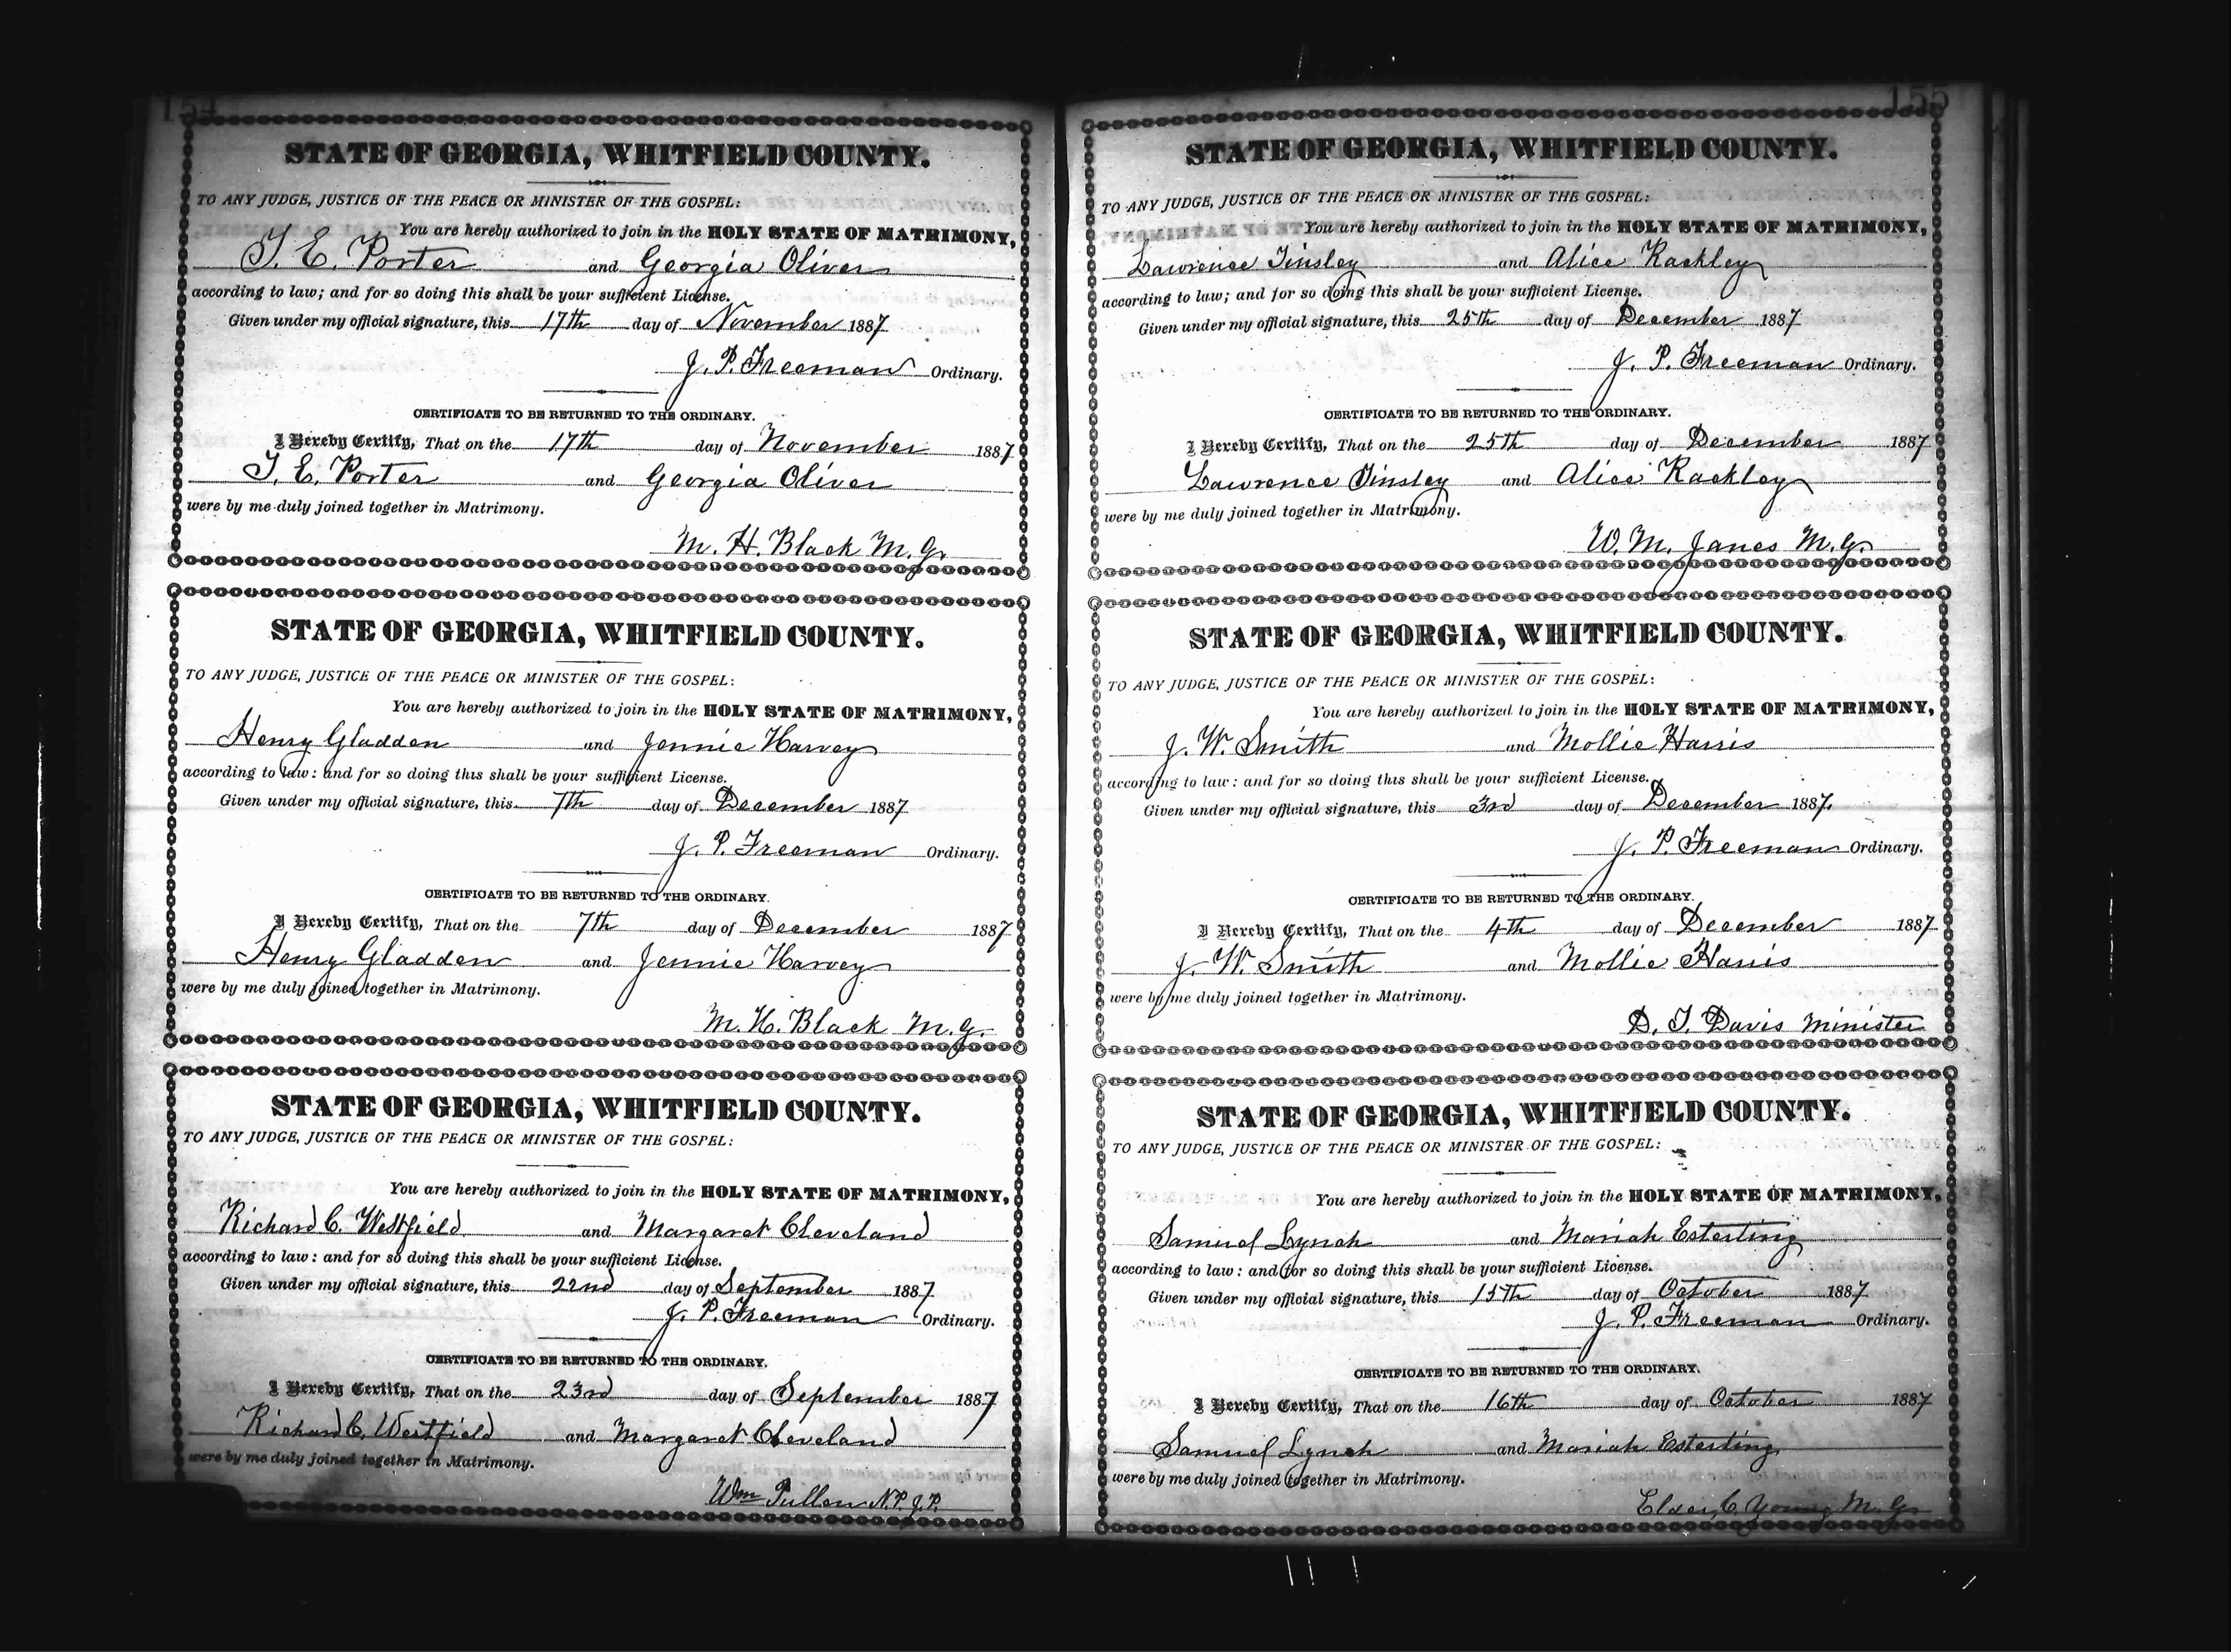 154
STATE OF GEORGIA, WHITFIELD COUNTY.
TO ANY JUDGE, JUSTICE OF THE PEACE OR MINISTER OF THE GOSPEL:
You are hereby authorized to join in the HOLY STATE OF MATRIMONY,
T. E. Porter and Georgia Oliver
according to law; and for so doing this shall be your sufficient License.
Given under my official signature, this 17th day of November 1887
J. P. Freeman Ordinary.
CERTIFICATE TO BE RETURNED TO THE ORDINARY.
I Hereby Certify, That on the 17th day of November 1887
T. E. Porter and Georgia Oliver
were by me duly joined together in Matrimony.
M. H. Black M. G.
STATE OF GEORGIA, WHITFIELD COUNTY.
TO ANY JUDGE, JUSTICE OF THE PEACE OR MINISTER OF THE GOSPEL:
You are hereby authorized to join in the HOLY STATE OF MATRIMONY,
Henry Gladden and Jennie Harvey
according to law: and for so doing this shall be your sufficient License.
Given under my official signature, this 7th day of December 1887
J. P. Freeman Ordinary.
CERTIFICATE TO BE RETURNED TO THE ORDINARY.
I Hereby Certify, That on the 7th day of December 1887
Henry Gladden and Jennie Harvey
were by me duly joined together in Matrimony.
M. H. Black M. G.
STATE OF GEORGIA, WHITFIELD COUNTY.
TO ANY JUDGE, JUSTICE OF THE PEACE OR MINISTER OF THE GOSPEL:
You are hereby authorized to join in the HOLY STATE OF MATRIMONY,
Richard C. Westfield and Margaret Cleveland
according to law: and for so doing this shall be your sufficient License.
Given under my official signature, this 22nd day of September 1887.
J. P. Freeman Ordinary.
CERTIFICATE TO BE RETURNED TO THE ORDINARY.
I Hereby Certify, That on the 23rd day of September 1887
Richard C. Westfield and Margaret Cleveland
were by me duly joined together in Matrimony.
Wm Pullen N. P. J. P.
155
STATE OF GEORGIA, WHITFIELD COUNTY.
TO ANY JUDGE, JUSTICE OF THE PEACE OR MINISTER OF THE GOSPEL:
You are hereby authorized to join in the HOLY STATE OF MATRIMONY,
Lawrence Tinsley and Alice Rackley
according to law; and for so doing this shall be your sufficient License.
Given under my official signature, this 25th day of December 1887
J. P. Freeman Ordinary.
CERTIFICATE TO BE RETURNED TO THE ORDINARY.
I Hereby Certify, That on the 25th day of December 1887
Lawrence Tinsley and Alice Rackley
were by me duly joined together in Matrimony.
W. M. Janes M. G.
STATE OF GEORGIA, WHITFIELD COUNTY.
TO ANY JUDGE, JUSTICE OF THE PEACE OR MINISTER OF THE GOSPEL:
You are hereby authorized to join in the HOLY STATE OF MATRIMONY,
J. W. Smith and Mollie Harris
according to law: and for so doing this shall be your sufficient License.
Given under my official signature, this 3rd day of December 1887.
J. P. Freeman Ordinary.
CERTIFICATE TO BE RETURNED TO THE ORDINARY.
I Hereby Certify, That on the 4th day of December 1887
J. W. Smith and Mollie Harris
were by me duly joined together in Matrimony.
D. T. Davis Minister
STATE OF GEORGIA, WHITFIELD COUNTY.
TO ANY JUDGE, JUSTICE OF THE PEACE OR MINISTER OF THE GOSPEL:
You are hereby authorized to join in the HOLY STATE OF MATRIMONY,
Samuel Lynch and Mariah Esterting
according to law: and for so doing this shall be your sufficient License.
Given under my official signature, this 15th day of October 1887
J. P. Freeman Ordinary.
CERTIFICATE TO BE RETURNED TO THE ORDINARY.
I Hereby Certify, That on the 16th day of October 1887
Samuel Lynch and Mariah Esterting
were by me duly joined together in Matrimony.
Elder C. Young M. G.